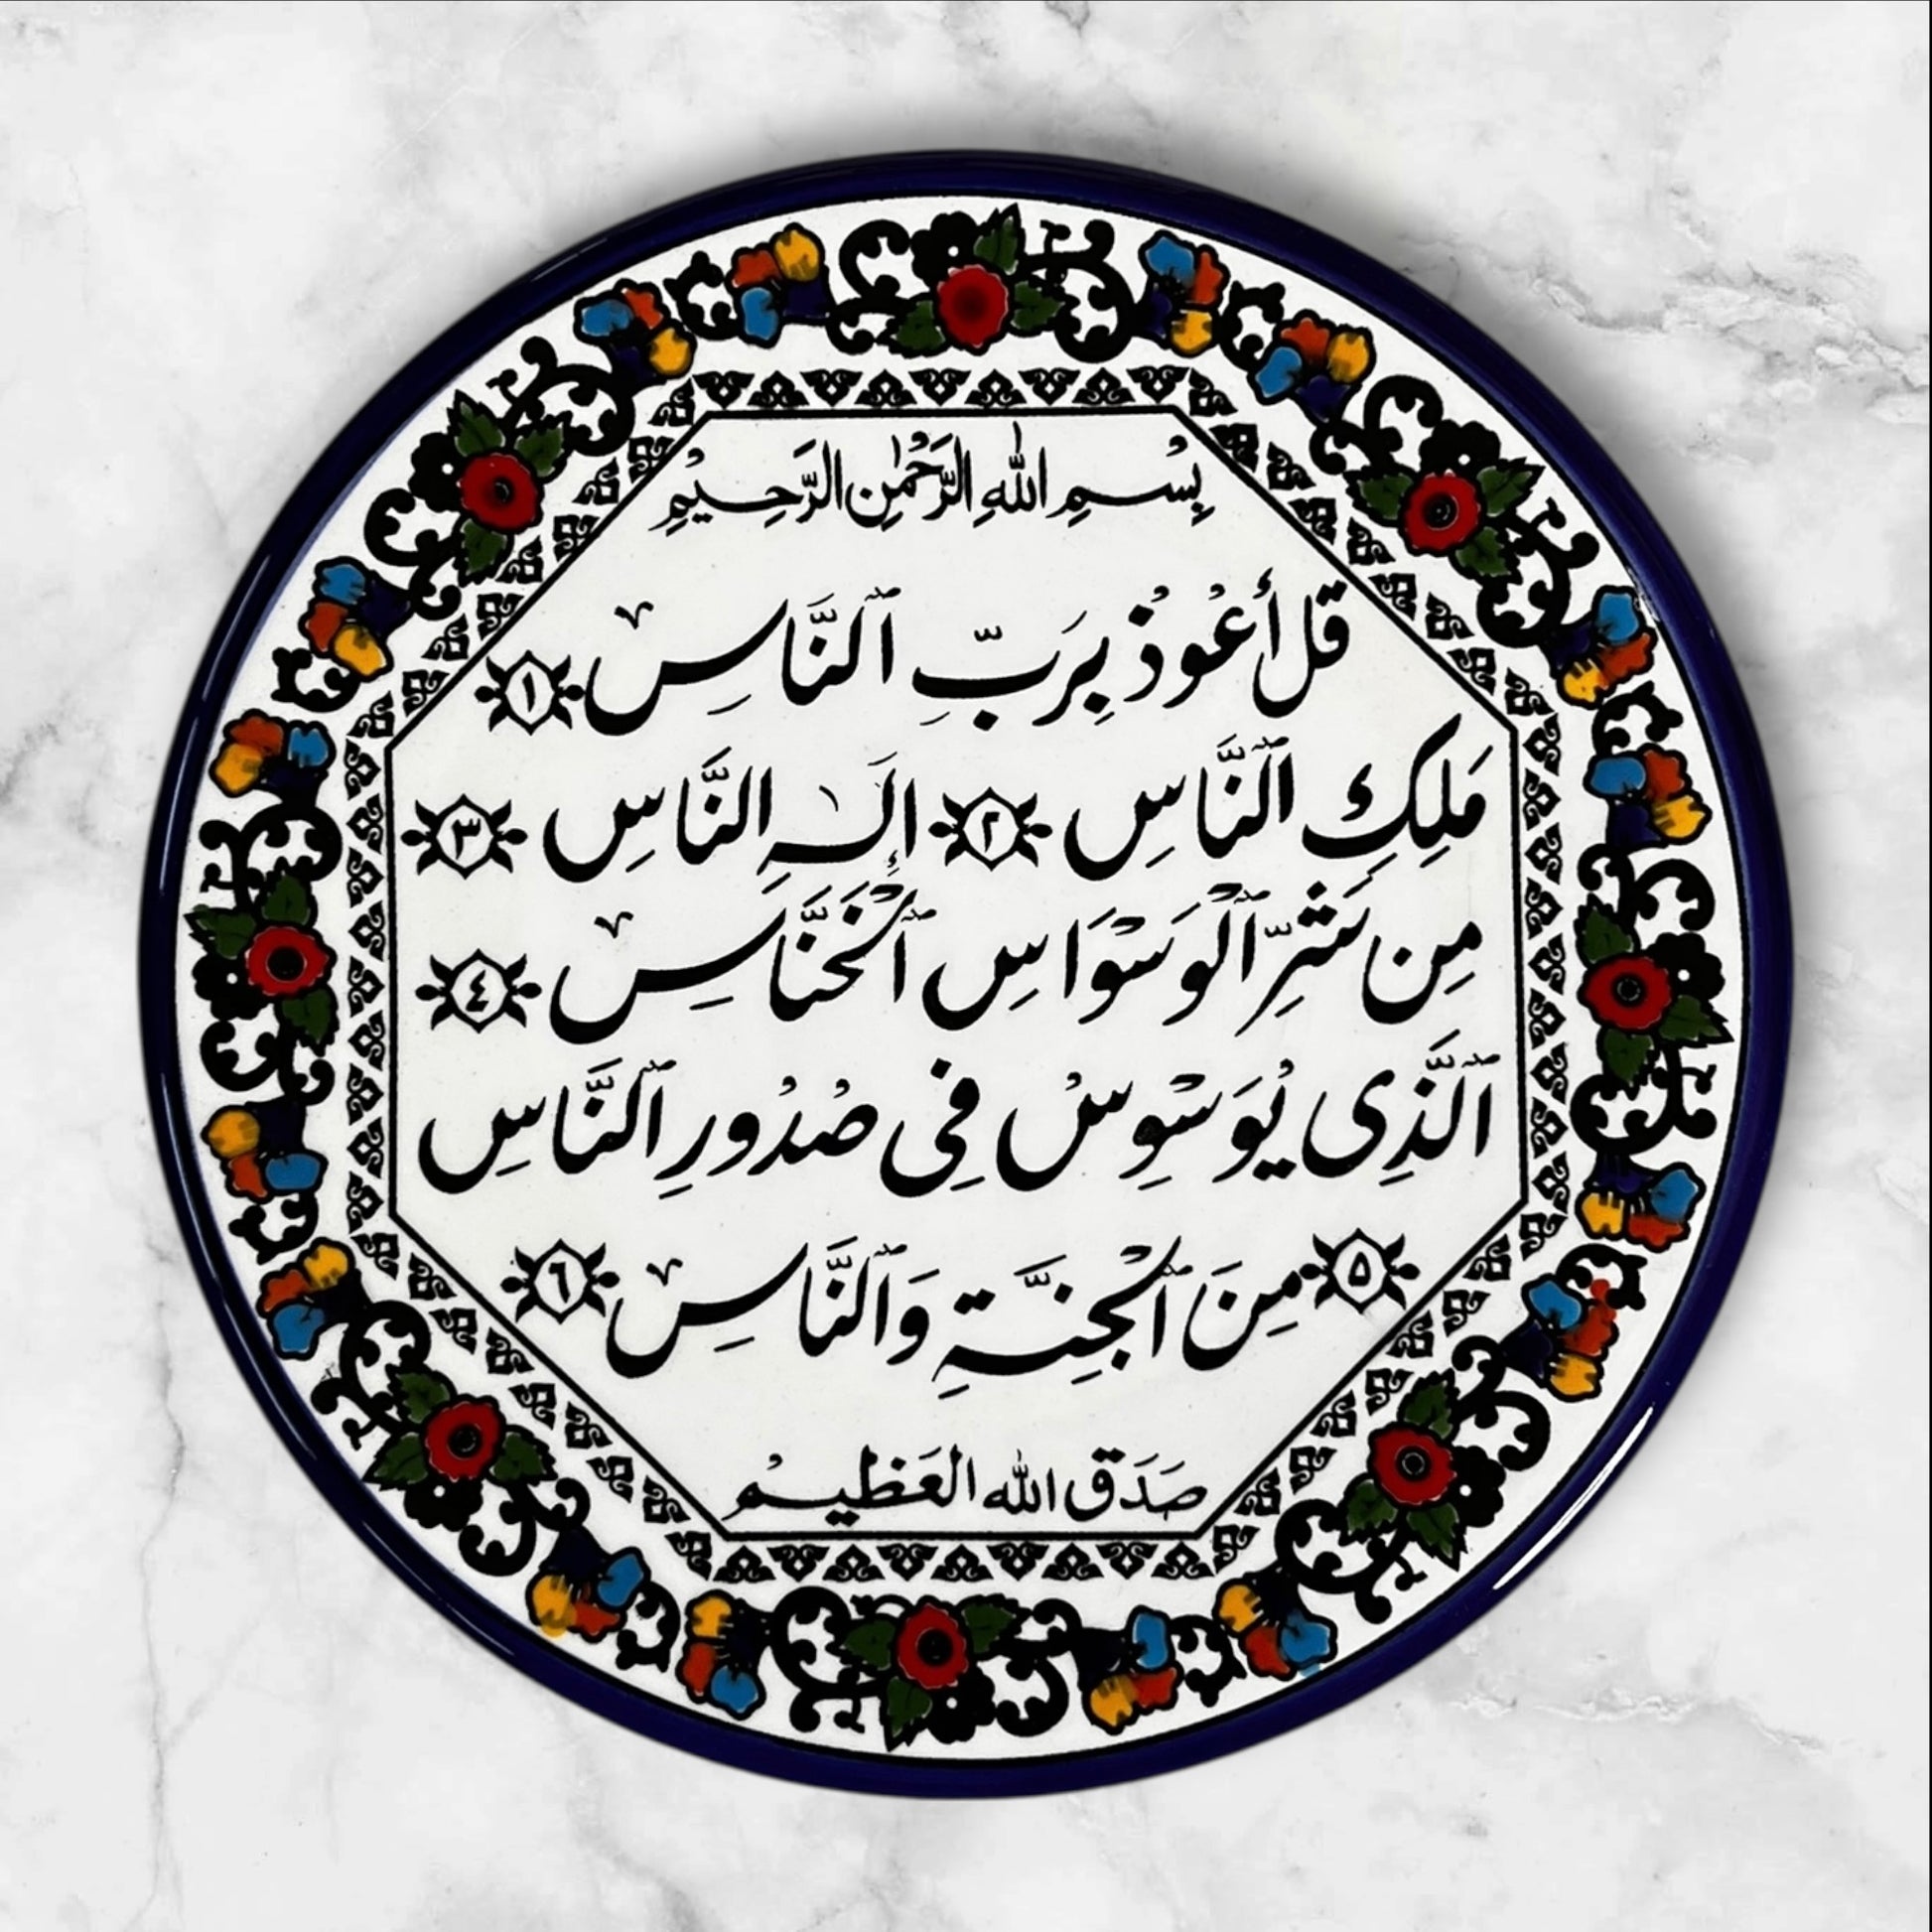 بِسْمِ اللهِ الرَّحْمٰنِ الرَّحِيْمِ
قُلْ أَعُوْذُ بِرَبِّ ٱلنَّاسِ ١
مَلِكِ ٱلنَّاسِ ٢ إِلَـٰهِ النَّاسِ ٣
مِن شَرِّ ٱلْوَسْوَاسِ ٱلْخَنَّاسِ ٤
ٱلَّذِى يُوَسْوِسُ فِى صُدُورِ ٱلنَّاسِ
٥ مِنَ ٱلْجِنَّةِ وَٱلنَّاسِ ٦
صَدَقَ الله العَظِيمُ